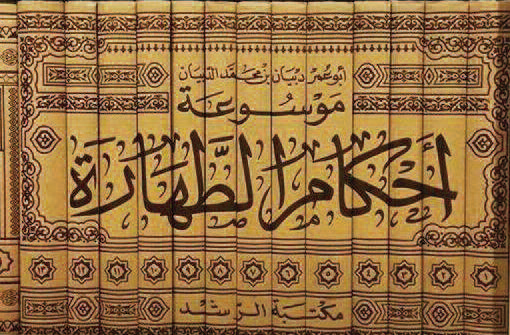 أبو عمر دبيان بن محمد الدبيان
موسوعة
أحكام الطهارة
١ ٢ ٣ ٤ ٥ ٦ ٧ ٨ ٩ ١٠ ١١ ١٢ ١٣
مكتبة الرشد